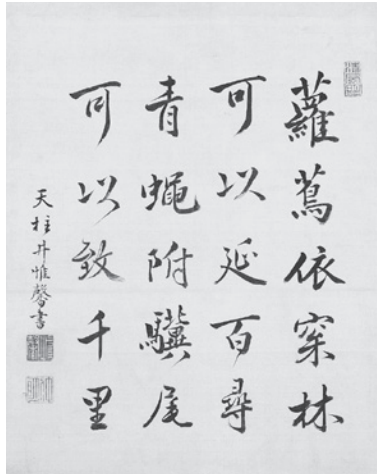 蘿蔦依寀林
可以延百尋
青蠅附驥尾
可以致千里
天柱井惟馨書